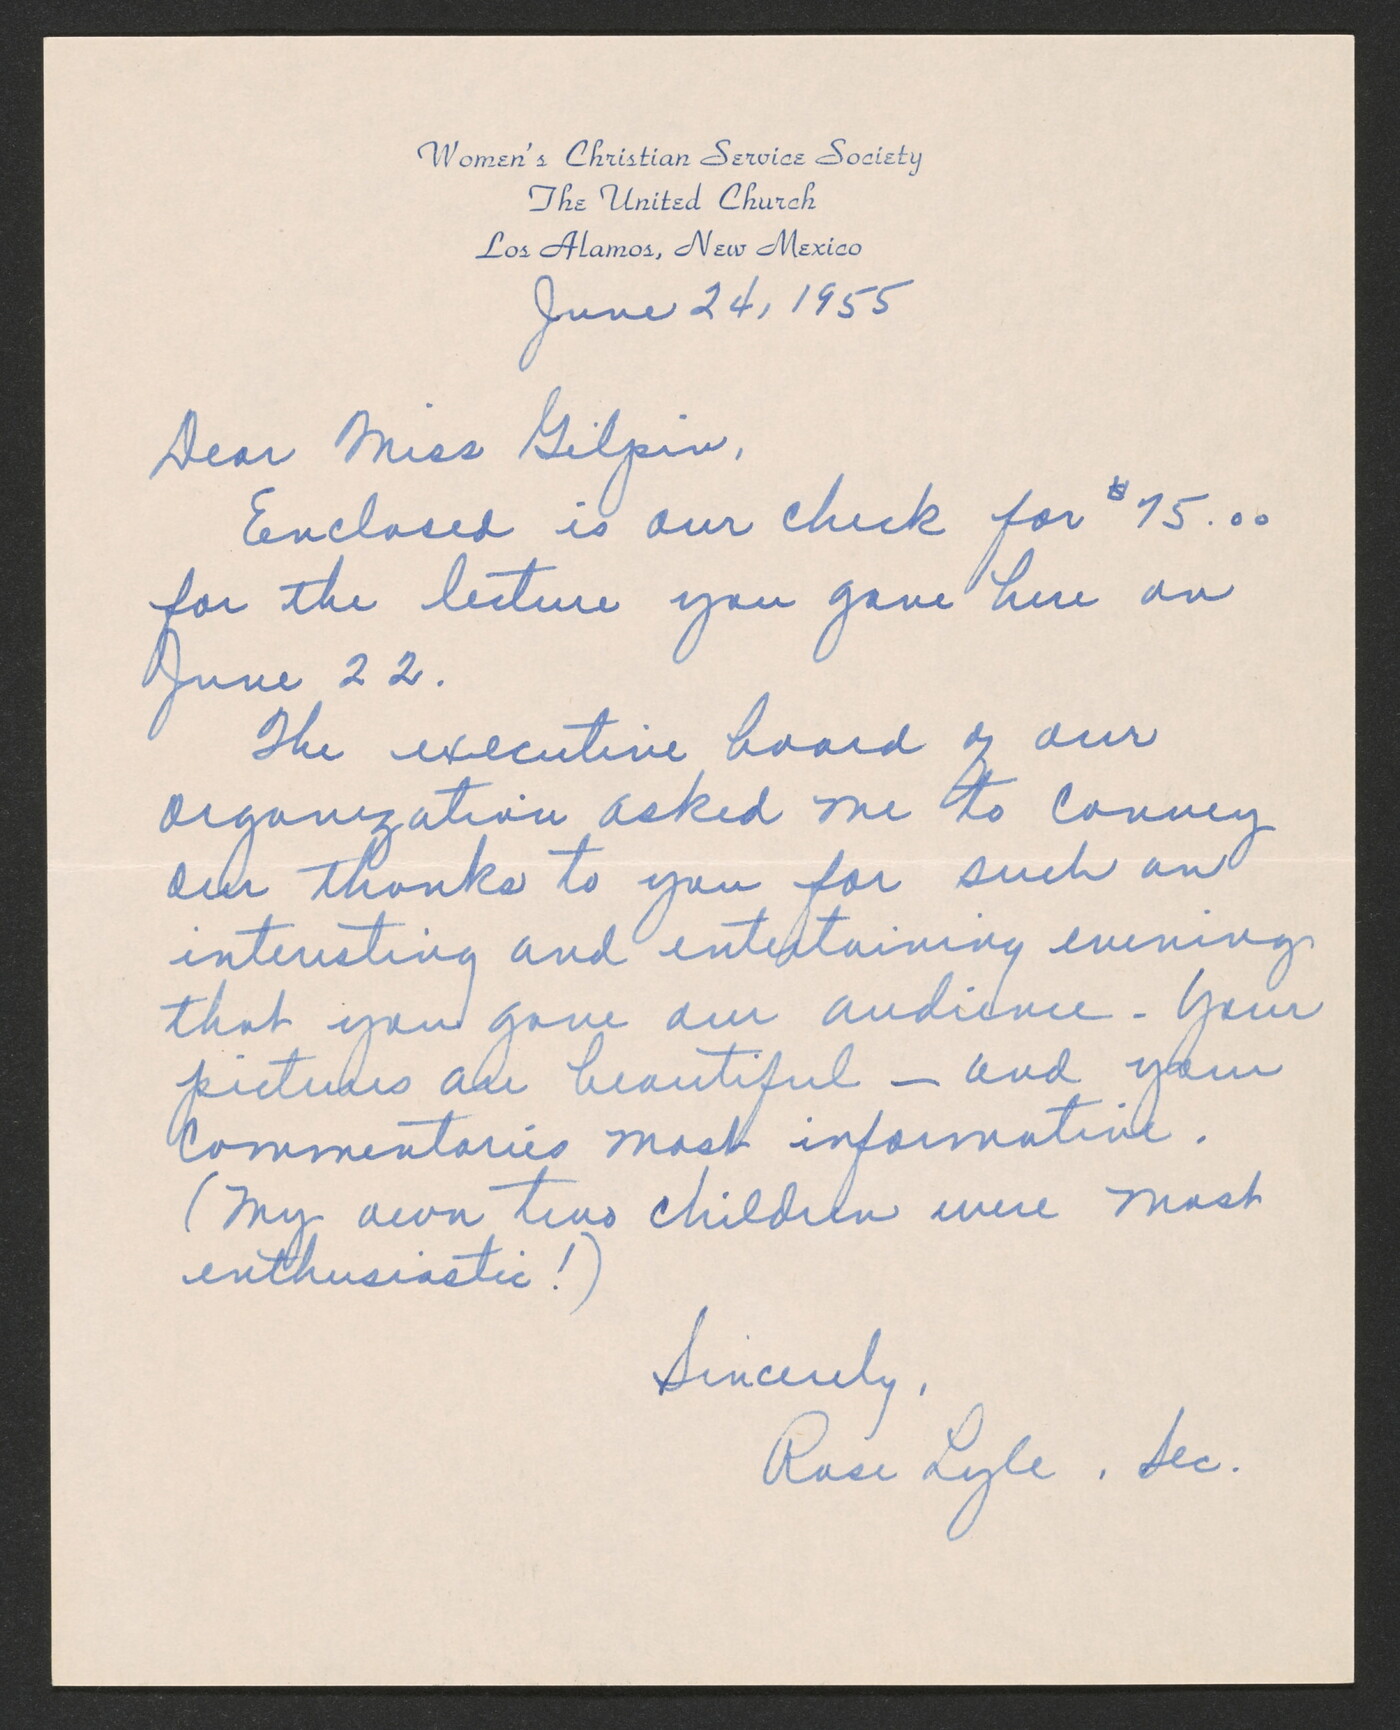 Women's Christian Service Society
The United Church
Los Alamos, New Mexico
June 24, 1955
Dear Miss Gilpin,
Enclosed is our check for $75.00
for the lecture you gave here on
June 22.
The executive board of our
organization asked me to convey
our thanks to you for such an
interesting and entertaining evening
that you gave our audience - Your
pictures are beautiful — and your
commentaries most informative.
(My own two children were most
enthusiastic!)
Sincerely,
Rose Lyle, Sec.